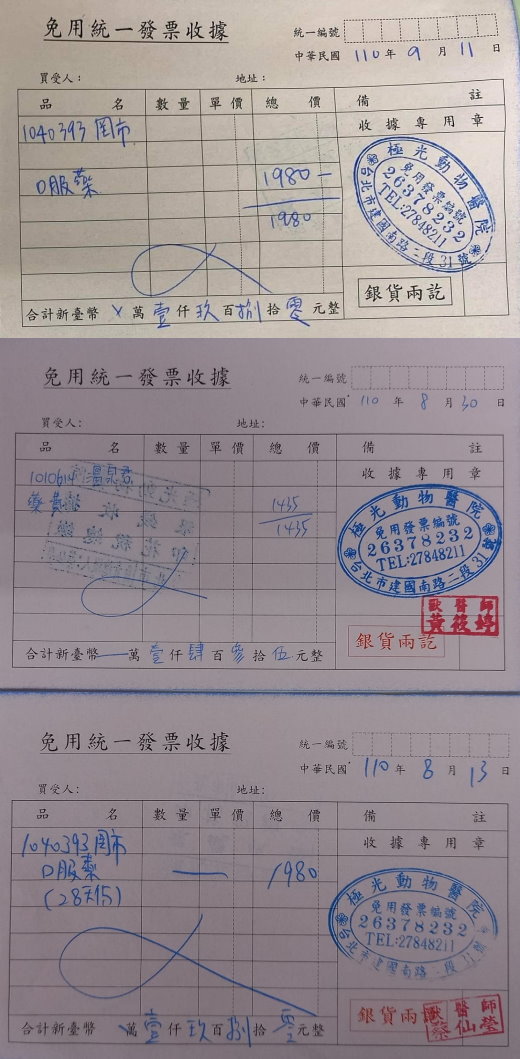 免用統一發票收據
統一編號
中華民國 110 年 9 月 11 日
買受人： 地址：
品名 數量 單價 總價 備註
收據專用章
1040393 周市
口服藥 1980 —
1980
極光動物醫院
免用發票編號
26378232
TEL:27848211
台北市建國南路二段31號
銀貨兩訖
合計新臺幣 X 萬 壹 仟 玖 百 捌 拾 零 元整
免用統一發票收據
統一編號
中華民國 110 年 8 月 30 日
買受人： 地址：
品名 數量 單價 總價 備註
收據專用章
1010614 溫泉君
藥費 1435
1435
極光動物醫院
免用發票編號
26378232
TEL:27848211
台北市建國南路二段31號
獸醫師
黃筱婷
銀貨兩訖
合計新臺幣 — 萬 壹 仟 肆 百 參 拾 伍 元整
免用統一發票收據
統一編號
中華民國 110 年 8 月 13 日
買受人： 地址：
品名 數量 單價 總價 備註
收據專用章
1040393 周市
口服藥 — 1980
(28天份)
極光動物醫院
免用發票編號
26378232
TEL:27848211
台北市建國南路二段31號
銀貨兩訖
獸醫師
蔡仙瑩
合計新臺幣 X 萬 壹 仟 玖 百 捌 拾 零 元整